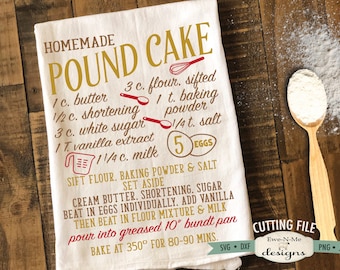 HOMEMADE
POUND CAKE
1 c. butter
3 c. flour, sifted
1/2 c. shortening
1 t. baking powder
3 c. white sugar
1/4 t. salt
1 T vanilla extract
5 EGGS
1 1/4 c. milk
SIFT FLOUR, BAKING POWDER & SALT
SET ASIDE
CREAM BUTTER, SHORTENING, SUGAR
BEAT IN EGGS INDIVIDUALLY, ADD VANILLA
THEN BEAT IN FLOUR MIXTURE & MILK
pour into greased 10" bundt pan
BAKE AT 350° FOR 80-90 MINS.
CUTTING FILE
Ewe-N-Me
designs
SVG • DXF
PNG •